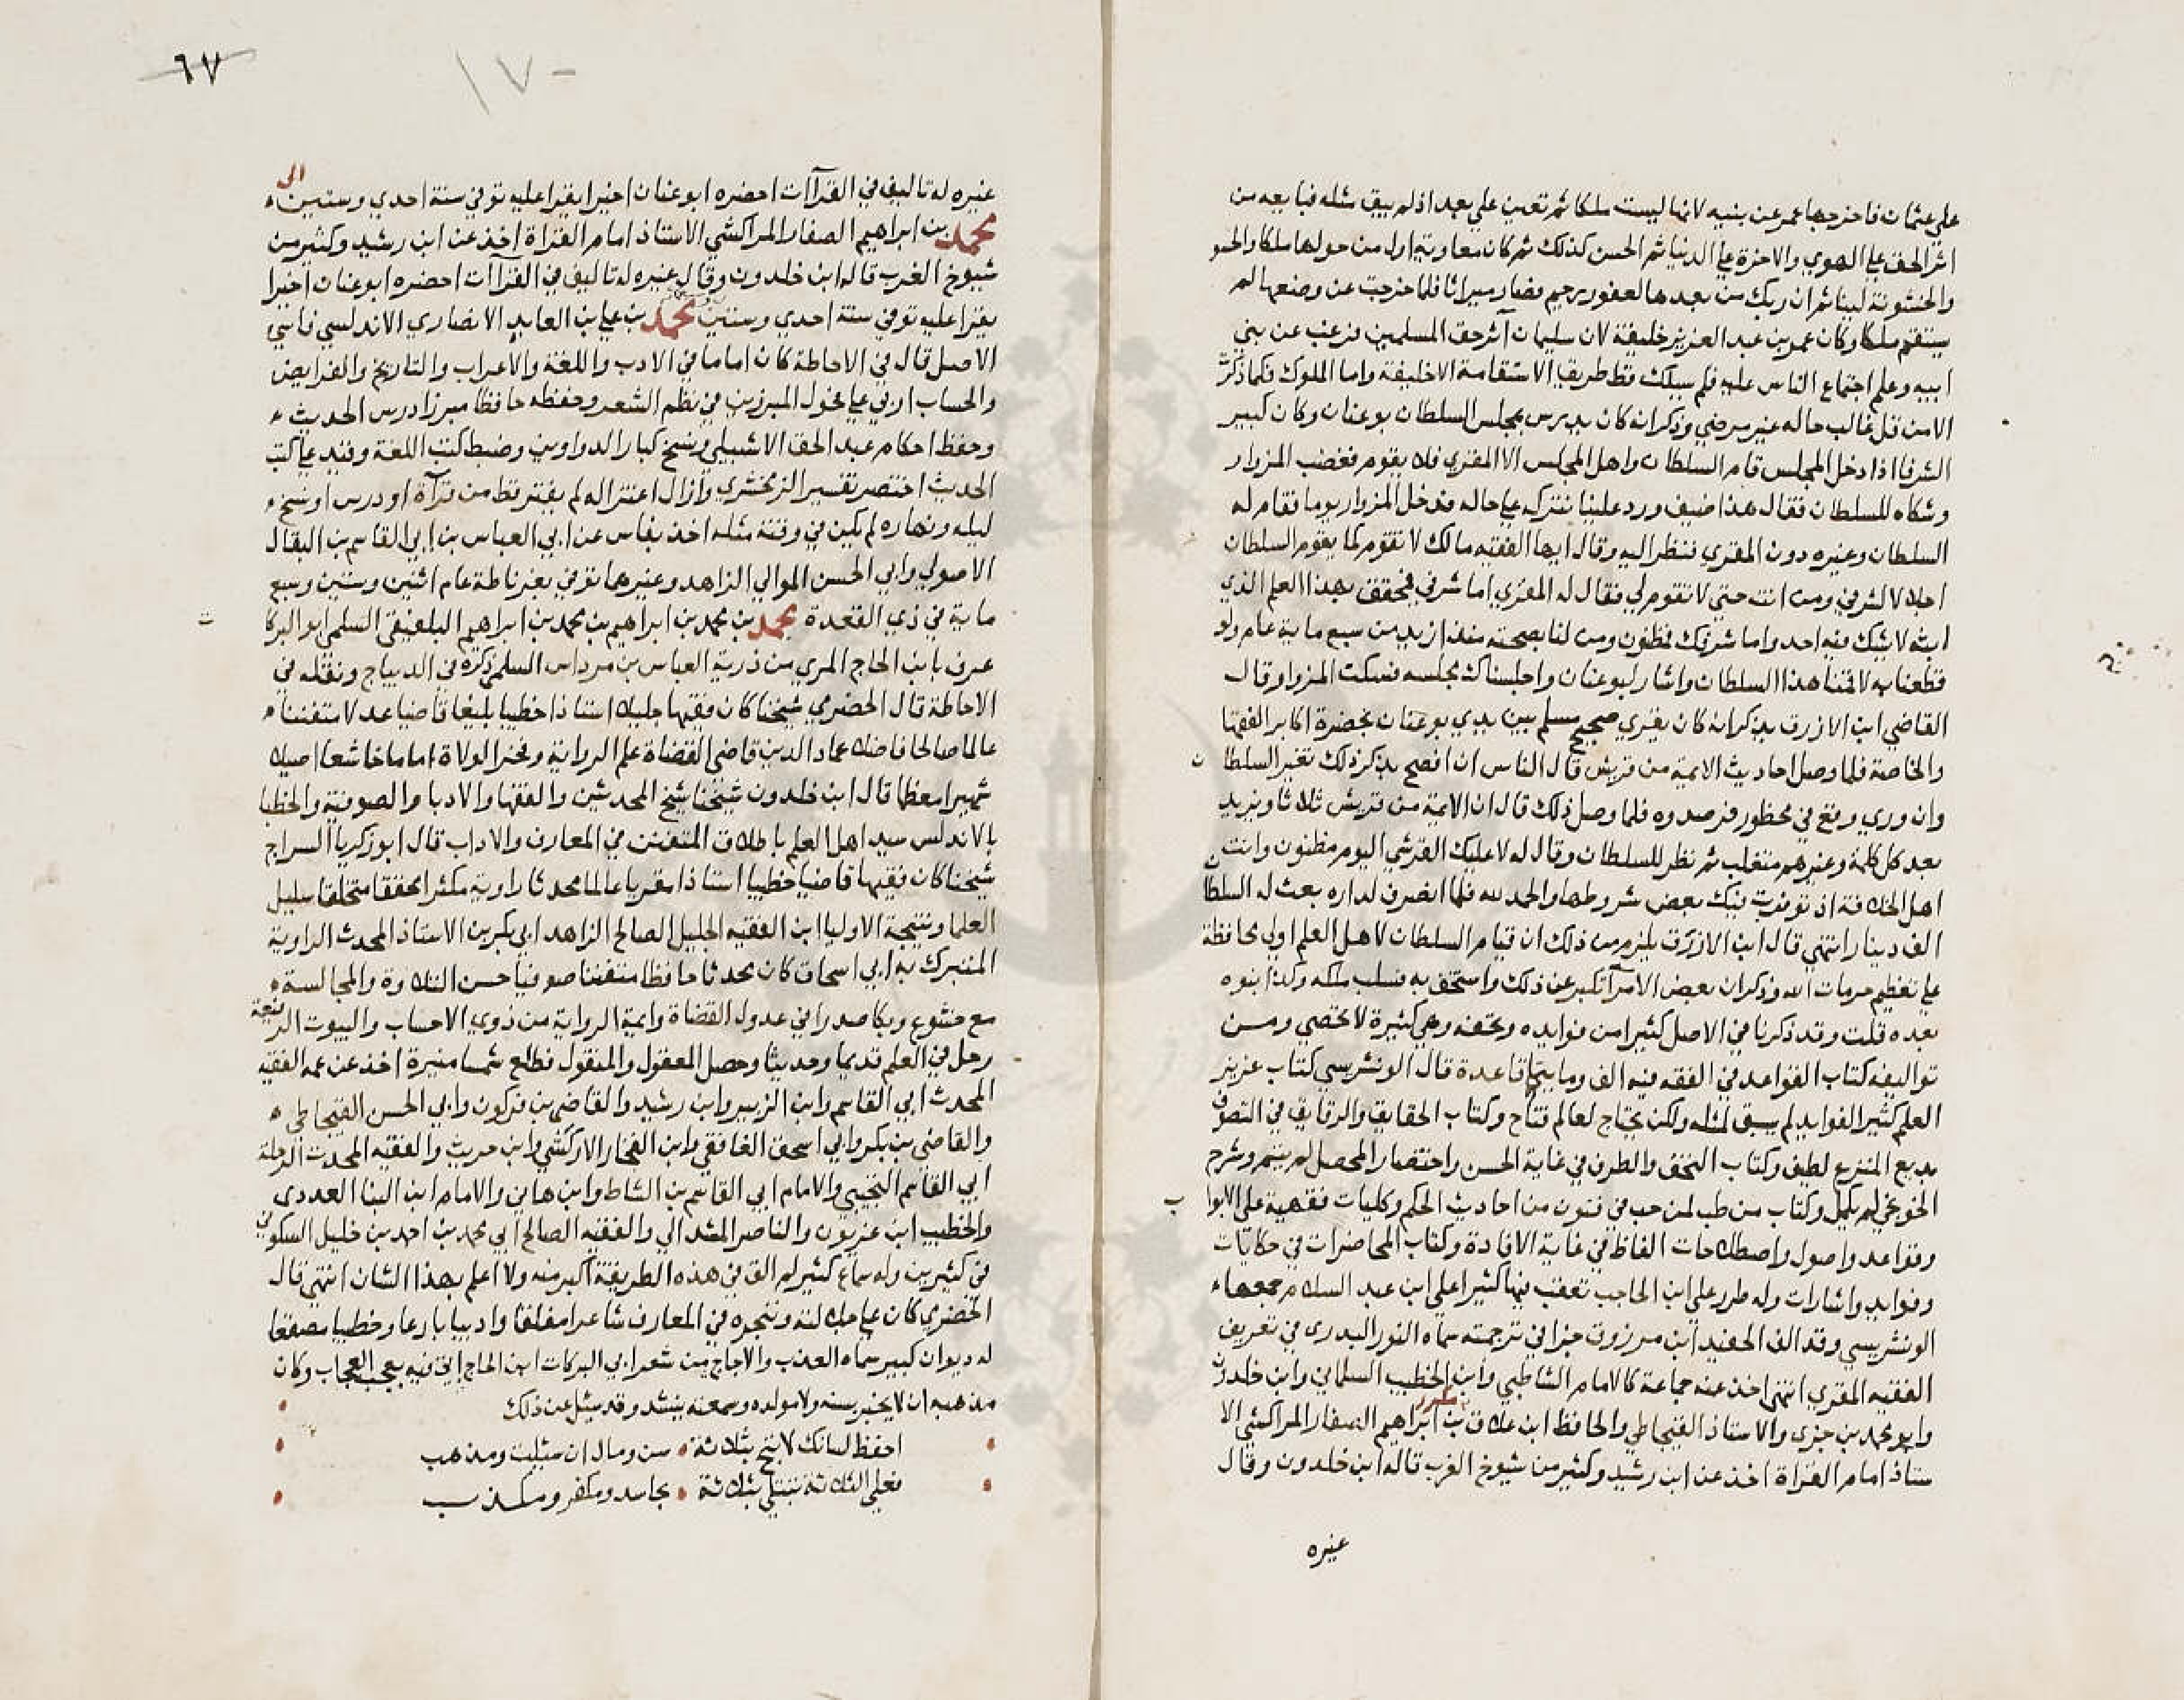 علي عثمان فاخرجها عمر عن بنيه لانها ليست ملكا ثم تعين علي بعد اذ لم يبق مثله فبايعه من
اثر الحق علي الهوي والاخرة علي الدنيا ثم الحسن كذلك ثم كان معاوية اول من حولها ملكا والحسو
والخشونة لينا ثم ان ربك من بعدها لغفور رحيم فصار ميراثا فلما خرجت عن وضعها لم
يستقم ملكا وكان عمر بن عبد العزيز خليفة لان سليمان آثر حق المسلمين فرغب عن بني
ابيه وعلم اجتماع الناس عليه فلم يسلك قط طريق الاستقامة الا خليفة واما الملوك فكما ذكرت
الا من قل غالب حاله غير مرضي وذكر انه كان يدرس بمجلس السلطان بوعنان وكان كبير
الشرفا اذا دخل المجلس قام السلطان واهل المجلس الا المقري فلا يقوم فغضب المزوار
وشكاه للسلطان فقال هذا ضيف ورد علينا نتركه علي حاله فدخل المزوار يوما فقام له
السلطان وغيره دون المقري فنظر اليه وقال ايها الفقيه مالك لا تقوم كما يقوم السلطان
اجلالا لشرفي ومن انت حتي لا تقوم لي فقال له المقري اما شرفي فمحقق بهذا العلم الذي
ابثه لا يشك فيه احد واما شرفك فظنون ومن لنا بصحته منذ ازيد من سبع ماية عام ولو
قطعنا به لاقمنا هذا السلطان واشار لبوعنان واجلسناك مجلسه فسكت المزوار وقال
القاضي ابن الازرق بذكر انه كان يقري صحيح مسلم بين يدي بوعنان بحضرة اكابر الفقها
والخاصة فلما وصل احاديث الايمة من قريش قال الناس ان افصح بذكر ذلك تغير السلطان
وان وري وقع في محظور فرصدوه فلما وصل ذلك قال ان الايمة من قريش ثلاثا ويزيد
بعد كل كلمة وغيرهم متغلب ثم نظر للسلطان وقال له لا عليك القرشي اليوم مظنون وانت من
اهل الخلافة اذ توفرت فيك بعض شروطها والحمد لله فلما انصرف لداره بعث له السلطا
الف دينار انتهي قال ابن الازرق يلزم من ذلك ان قيام السلطان لاهل العلم اولي محافظة
علي تعظيم حرمات الله وذكر ان بعض الامرآ تكبر عن ذلك واستخف به فسلب ملكه وكذا بنوه
بعده قلت وقد ذكرنا في الاصل كثيرا من فوايده وتحفه وهي كثيرة لا تحصي ومن
تواليفه كتاب القواعد في الفقه فيه الف وماية قاعدة قال الونشريسي كتاب عزيز
العلم كثير الفوايد لم يسبق لمثله ولكن يحتاج لعالم فتاح وكتاب الحقايق والرقايق في التصوف
بديع المنزع لطيف وكتاب التحف والطرف في غاية الحسن واختصار المحصل لم يتم وشرح
الخونجي لم يكمل وكتاب من طب لمن حب في فنون من احاديث الحكم وكليات فقهية علي الابواب
وقواعد واصول واصطلاحات الفاظ في غاية الافادة وكتاب المحاضرات في حكايات
وفوايد واشارات وله طرر علي ابن الحاجب تعقب فيها كثيرا علي ابن عبد السلام جمعها
الونشريسي وقد الف الحفيد ابن مرزوق جزا في ترجمته سماه النور البدري في تعريف
الفقيه المقري انتهي اخذ عنه جماعة كالامام الشاطبي وابن الخطيب السلماني وابن خلدون
وابو محمد بن جزي والاستاذ القيجاطي والحافظ ابن علاق محمد بن ابراهيم الصفار المراكشي الا
ستاذ امام القراة اخذ عن ابن رشيد وكثير من شيوخ الغرب قاله ابن خلدون وقال
غيره
٦٧
١٧٠
غيره له تاليف في القراآت احضره ابو عنان اخيرا يقرا عليه توفي سنة احدي وستين الى
محمد بن ابراهيم الصفار المراكشي الاستاذ امام القراة اخذ عن ابن رشيد وكثير من
شيوخ الغرب قاله ابن خلدون وقال غيره له تاليف في القراآت احضره ابو عنان اخيرا
يقرا عليه توفي سنة احدي وستين محمد بن علي بن العابد الانصاري الاندلسي فاسي
الاصل قال في الاحاطة كان اماما في الادب واللغة والاعراب والتاريخ والفرايض
والحساب اربي علي فحول المبرزين في نظم الشعر وحفظه حافظا مبرزا درس الحديث
وحفظ احكام عبد الحق الاشبيلي ونسخ كبار الدواوين وضبط كتب اللغة وقيد علي كتب
الحديث اختصر تفسير الزمخشري وازال اعتزاله لم يفتر قط من قرآة او درس او نسخ
ليله ونهاره لم يكن في وقته مثله اخذ بفاس عن ابي العباس بن ابي القاسم بن البقال
الاصولي وابي الحسن الموالي الزاهد وغيرهما توفي بغرناطة عام اثنين وستين وسبع
ماية في ذي القعدة محمد بن محمد بن ابراهيم بن محمد بن ابراهيم البلفيقي السلمي ابو البركات
عرف بابن الحاج المري من ذرية العباس بن مرداس السلمي ذكره في الديباج ونقله في
الاحاطة قال الحضرمي شيخنا كان فقيها جليلا استاذا خطيبا بليغا قاضيا عدلا متفننا
عالما صالحا فاضلا عماد الدين قاضي القضاة علم الرواية وفخر الولاة اماما خاشعا اصيلا
شهيرا معظما قال ابن خلدون شيخنا شيخ المحدثين والفقها والادبا والصوفية والخطبا
بالاندلس سيد اهل العلم باطلاق المتفنن في المعارف والاداب قال ابو زكريا السراج
شيخنا كان فقيها قاضيا خطيبا استاذا مقريا عالما محدثا راوية مكثرا محققا متخلقا سليل
العلما ونتيجة الاوليا ابن الفقيه الجليل الصالح الزاهد ابي بكر بن الاستاذ المحدث الراوية
المتبرك به ابي اسحاق كان محدثا حافظا متفننا صوفيا حسن التلاوة والمجالسة
مع خشوع وبكا صدرا في عدول القضاة وايمة الرواية من ذوي الاحساب والبيوت الرفيعة
رحل في العلم قديما وحديثا وحصل المعقول والمنقول فطلع شمسا منيرة اخذ عن عمه الفقيه
المحدث ابي القاسم وابن الزبير وابن رشيد والقاضي بن فركون وابي الحسن القيجاطي
والقاضي بن بكر وابي اسحق الغافقي وابن الفخار الاركشي وابن حريث والفقيه المحدث الرحلة
ابي القاسم التجيبي والامام ابي القاسم بن الشاط وابن هاني والامام ابن البنا العددي
والخطيب ابن غزيون والناصر المشدالي والفقيه الصالح ابي محمد بن احمد بن خليل السكوني
في كثيرين وله سماع كثير لم الق في هذه الطريقة اكبر منه ولا اعلم بهذا الشان انتهي قال
الحضرمي كان علي جلالته وتبحره في المعارف شاعرا مفلقا واديبا بارعا وخطيبا مصقعا
له ديوان كبير سماه العذب والاجاج من شعر ابي البركات ابن الحاج اتي فيه بعجب العجاب وكان
مذهبه ان لا يخبر بسنه ولا مولده وسمعته ينشد وقد سئل عن ذلك
احفظ لسانك لا تبح بثلاثة سن ومال ان سئلت ومذهب
فعلي الثلاثة تبتلي بثلاثة بحاسد ومكفر ومكذب